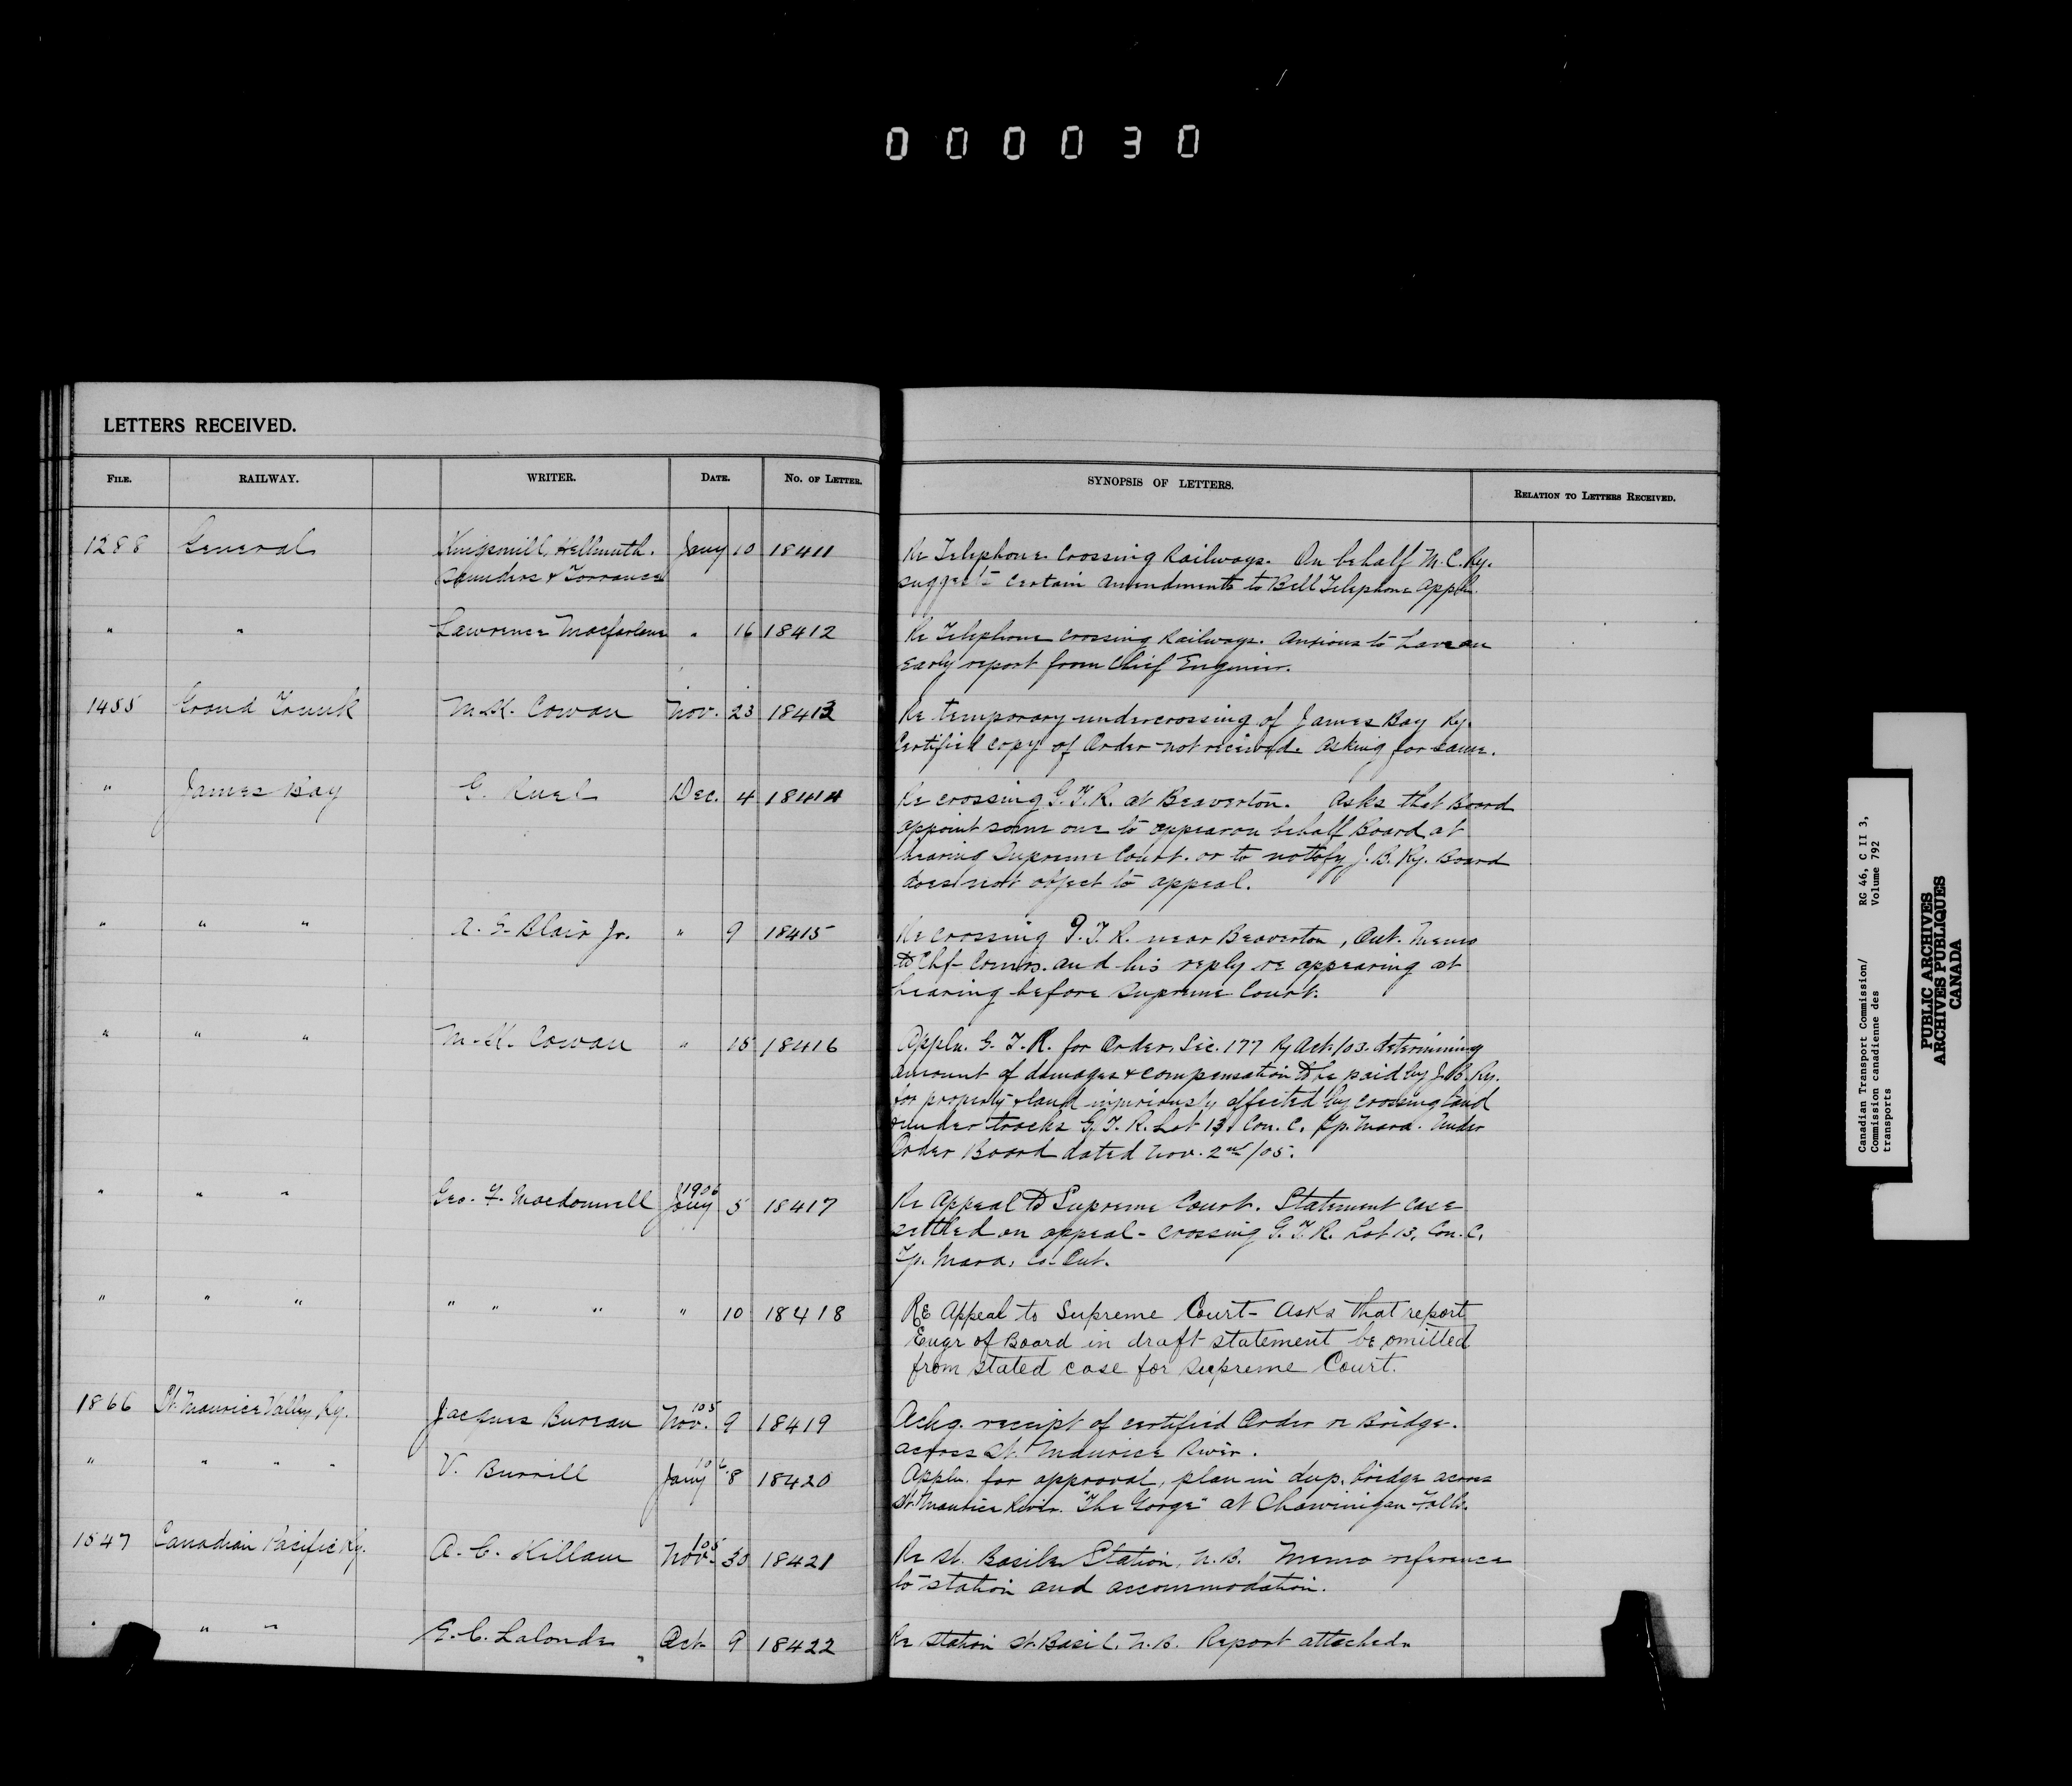 000030
LETTERS RECEIVED.
FILE. RAILWAY. WRITER. DATE. NO. OF LETTER. SYNOPSIS OF LETTERS. RELATION TO LETTERS RECEIVED.
1288 General Kingsmill, Hellmuth. Jany 10 18411 Re Telephone Crossing Railways. On behalf M.C. Ry.
Saunders & Torrance suggest certain amendments to Bell Telephone appln.
" " Lawrence Macfarlane " 16 18412 Re Telephone crossing Railways. Anxious to have an
early report from Chief Engineer.
1455 Grand Trunk M.K. Cowan Nov. 23 18413 Re temporary undercrossing of James Bay Ry.
Certified copy of Order not received. Asking for same.
" James Bay G. Ruel Dec. 4 18414 Re crossing G.T.R. at Beaverton. Asks that Board
appoint some one to appear on behalf Board at
hearing Supreme Court. or to notify J.B. Ry. Board
does not object to appeal.
" " " A.G. Blair Jr. " 9 18415 Re crossing G.T.R. near Beaverton, Ont. Memo
to Chf Comrs. and his reply re appearing at
hearing before Supreme Court.
" " " M.K. Cowan " 15 18416 Appln. G.T.R. for Order, Sec. 177 Ry Act /03. determining
amount of damages & compensation to be paid by J.B. Ry.
for property & land injuriously affected by crossing land
& under tracks G.T.R. Lot 13, Con. C, Tp. Mara. Under
Order Board dated Nov. 2nd/05.
" " " Geo. F. Macdonnell 1906 Jany 5 18417 Re Appeal to Supreme Court. Statement case
settled on appeal - crossing G.T.R. Lot 13, Con. C,
Tp. Mara, Co. Ont.
" " " " " " " 10 18418 Re Appeal to Supreme Court - Asks that report
Engr of Board in draft statement be omitted
from stated case for Supreme Court.
1866 St. Maurice Valley Ry. Jacques Bureau Nov. /05 9 18419 Ackg. receipt of certified Order re Bridge.
across St. Maurice River.
" " " " V. Burrill Jany /06 8 18420 Appln. for approval, plan in dup. bridge across
St. Maurice River. "The Gorge" at Chawinigan Falls.
1547 Canadian Pacific Ry. A.C. Killam Nov. /05 30 18421 Re St. Basile Station, N.B. Memo reference
to station and accommodation.
" " " E.C. Lalonde Oct 9 18422 Re station St. Basil, N.B. Report attached.
Canadian Transport Commission/ RG 46, C II 3,
Commission canadienne des Volume 792
transports
PUBLIC ARCHIVES
ARCHIVES PUBLIQUES
CANADA